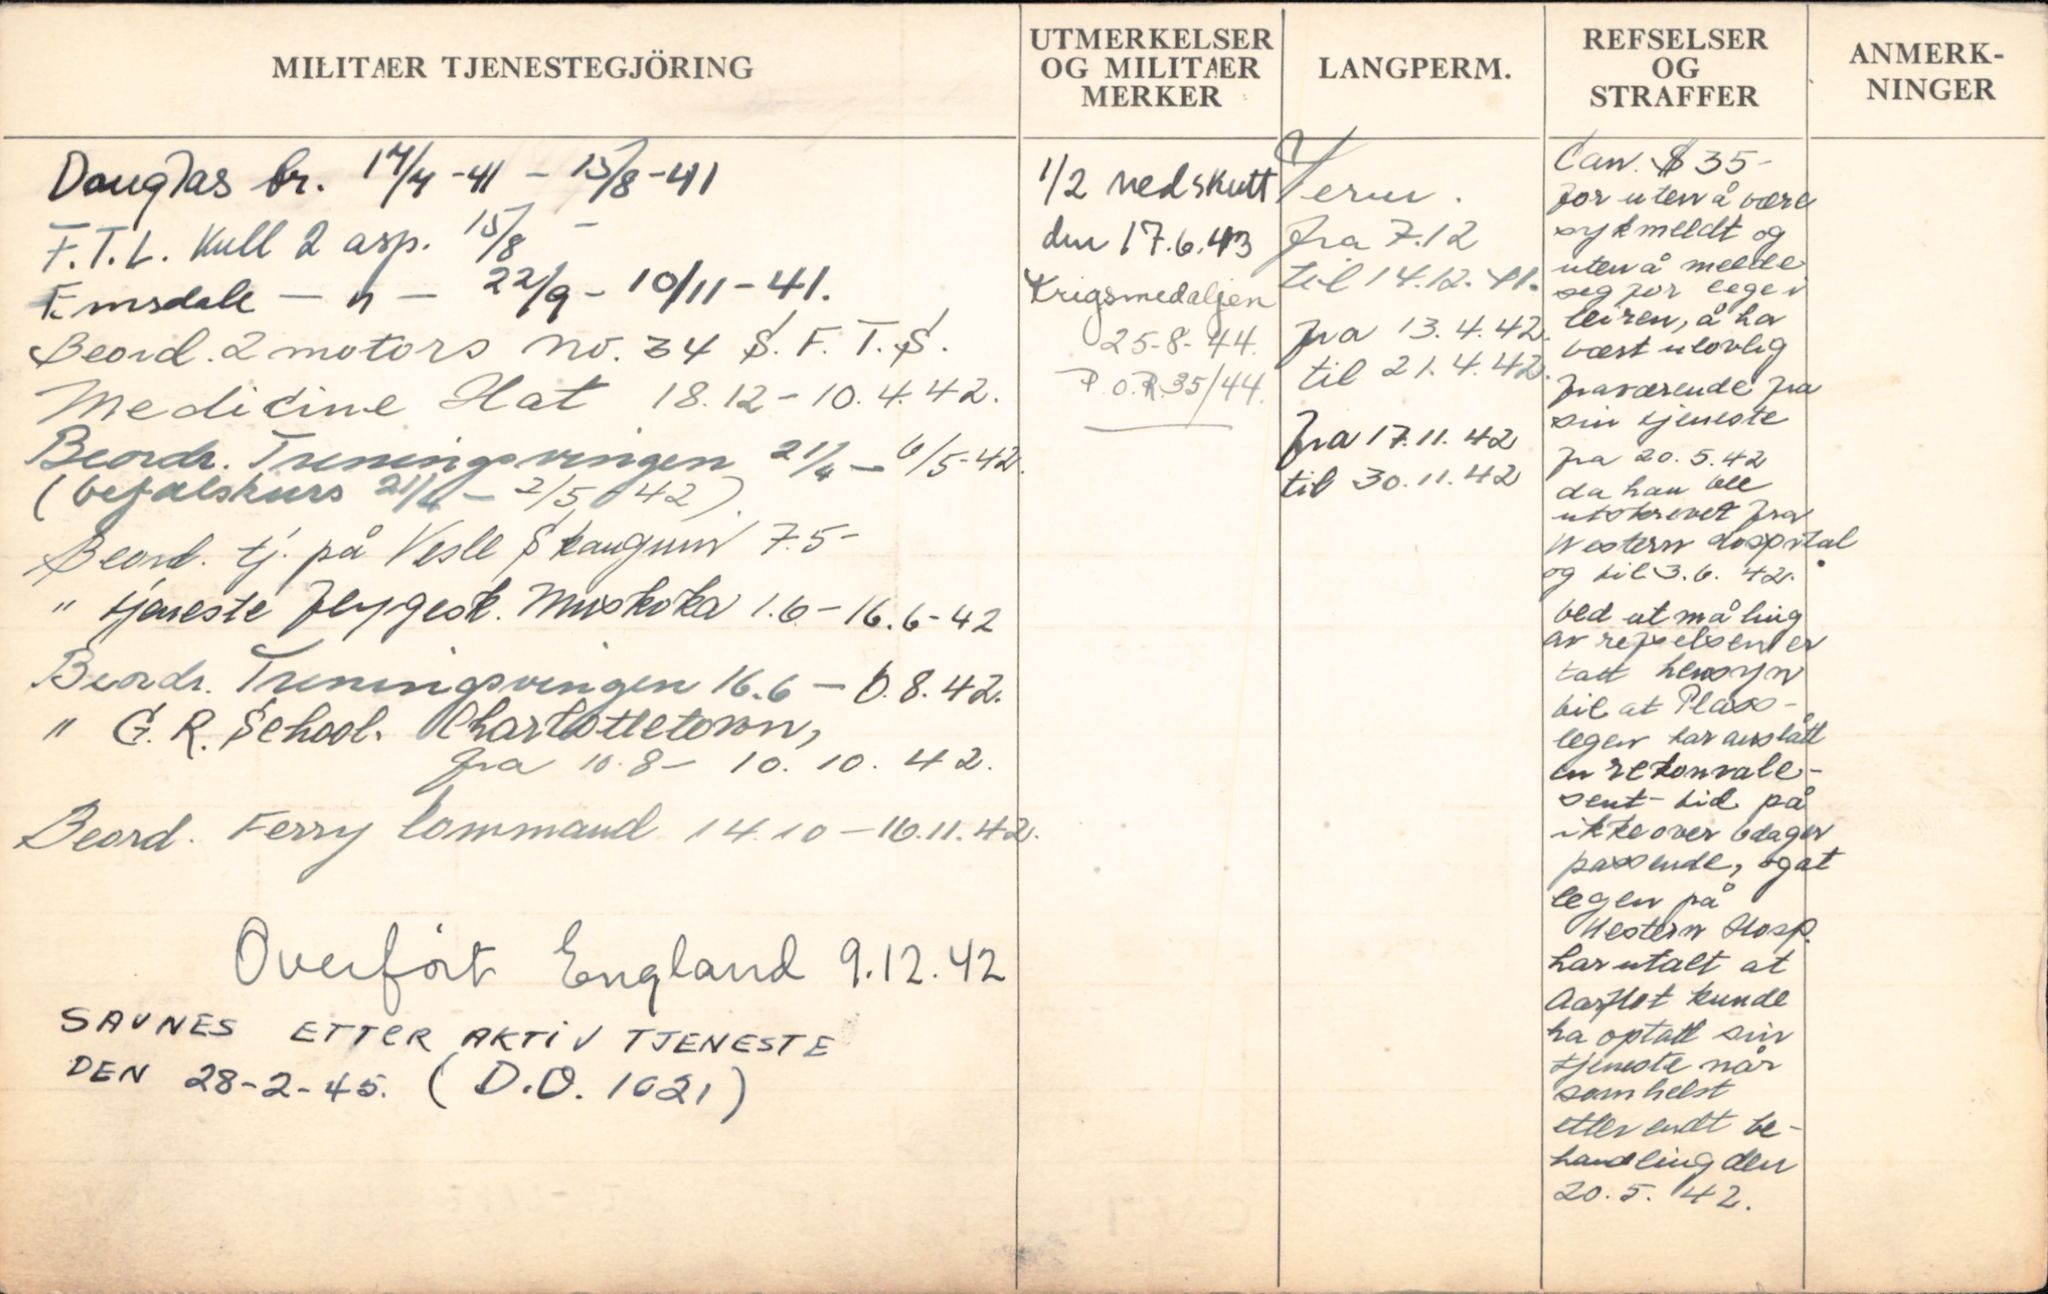 MILITÆR TJENESTEGJÖRING
Douglas br. 17/4-41 - 15/8-41
F.T.L. Kull 2 asp. 15/8 -
Emsdale - " - 22/9 - 10/11-41.
Beord. 2 motors No. 34 S.F.T.S.
Medicine Hat 18.12 - 10.4.42.
Beordr. Treningsvingen 21/4 - 6/5-42.
(befalskurs 21/4 - 2/5 42).
Beord. tj. på Vesle Skaugum 7.5-
" tjeneste flygesk. Muskoka 1.6 - 16.6-42
Beordr. Treningsvingen 16.6 - 6.8.42.
" G.R. School. Charlottetown,
fra 10.8 - 10.10.42.
Beord. Ferry Command 14.10 - 16.11.42.
Overført England 9.12.42
SAVNES ETTER AKTIV TJENESTE
DEN 28-2-45. (D.O. 1021)
UTMERKELSER
OG MILITÆR
MERKER
1/2 nedskutt
den 17.6.43
Krigsmedaljen
25-8-44.
P.O.R. 35/44.
LANGPERM.
Perm.
fra 7.12
til 14.12.41.
fra 13.4.42.
til 21.4.42.
fra 17.11.42
til 30.11.42
REFSELSER
OG
STRAFFER
Can. $ 35-
for uten å være
sykmeldt og
uten å melde
seg for lege i
leiren, å ha
vært ulovlig
fraværende fra
sin tjeneste
fra 20.5.42
da han ble
utskrevet fra
Western Hospital
og til 3.6.42.
Ved utmåling
av refselsen er
tatt hensyn
til at Plass-
legen har anslått
en rekonvale-
sent-tid på
ikke over 6 dager
passende, og at
legen på
Western Hosp.
har utalt at
Aarflot kunde
ha optatt sin
tjeneste når
somhelst
etter endt be-
handling den
20.5.42.
ANMERK-
NINGER